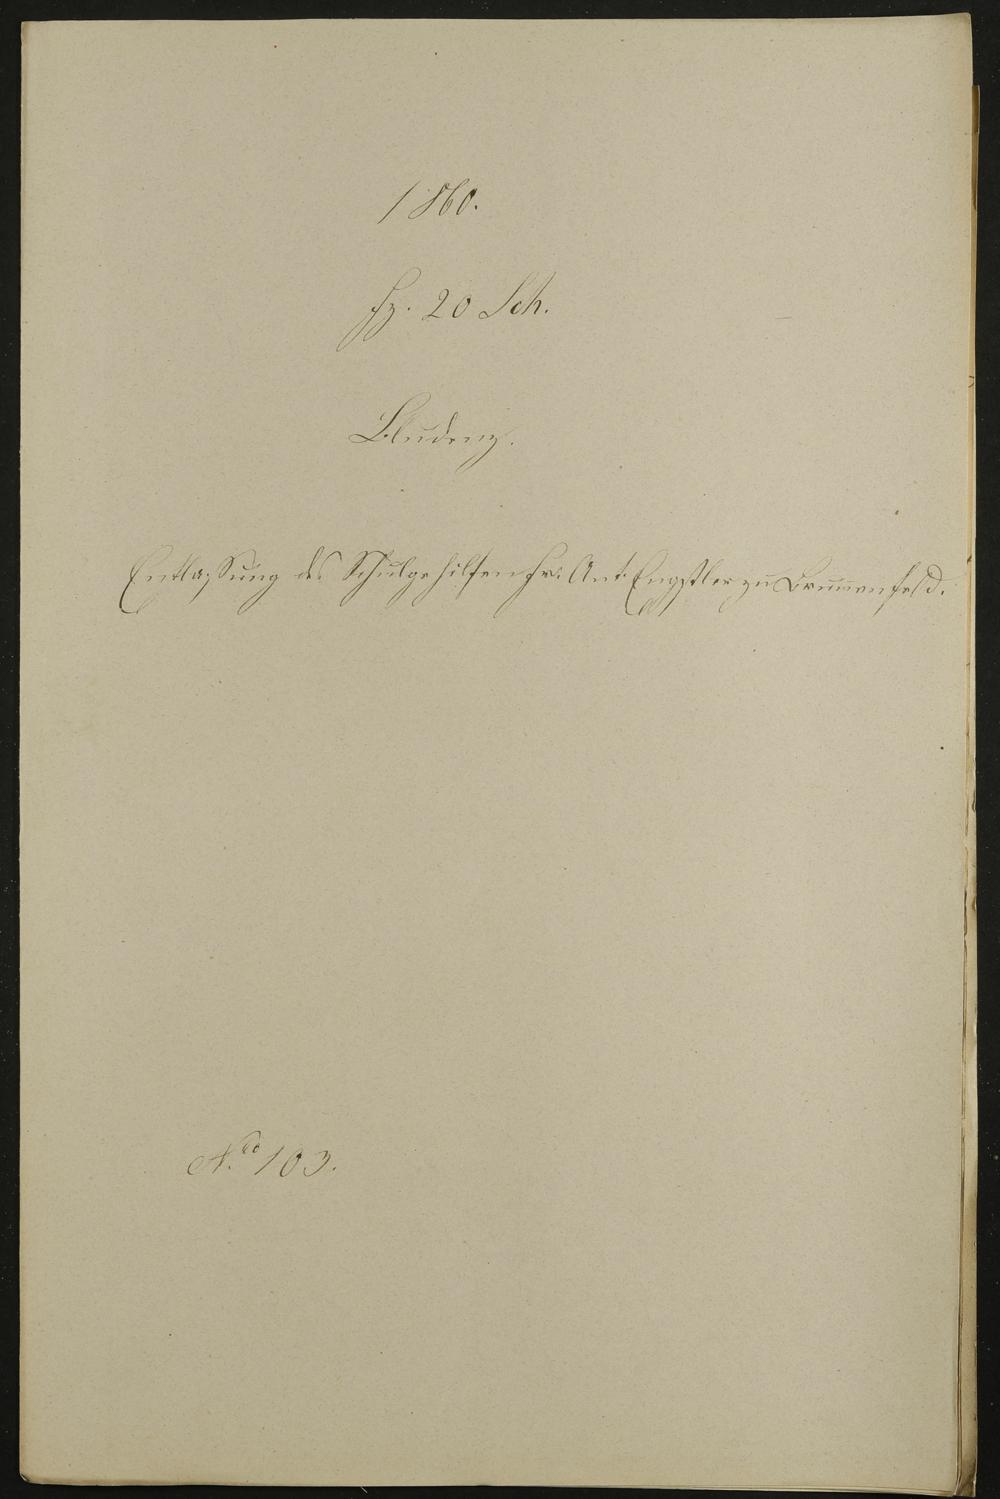 1860.
Fz. 20 Sch.
Bludenz.
Entlassung des Schulgehilfen Fr. Ant. Engstler zu Brunnenfeld.
No 103.